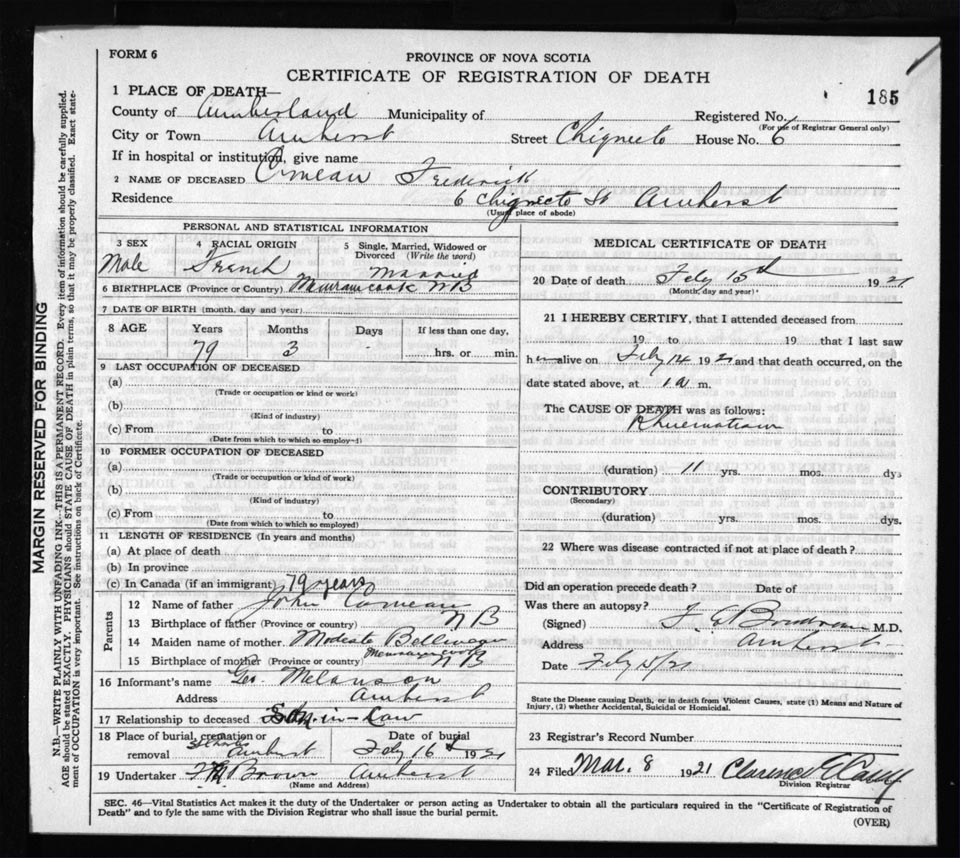 FORM 6
PROVINCE OF NOVA SCOTIA
CERTIFICATE OF REGISTRATION OF DEATH
185
1 PLACE OF DEATH—
County of Cumberland Municipality of Registered No.
(For use of Registrar General only)
City or Town Amherst Street Chignecto House No. 6
If in hospital or institution, give name
2 NAME OF DECEASED Comeau Frederick
Residence 6 Chignecto St Amherst
(Usual place of abode)
PERSONAL AND STATISTICAL INFORMATION
3 SEX 4 RACIAL ORIGIN 5 Single, Married, Widowed or
Divorced (Write the word)
Male French Married
6 BIRTHPLACE (Province or Country) NB
7 DATE OF BIRTH (month, day and year)
8 AGE Years Months Days If less than one day,
79 3 - hrs. or min.
9 LAST OCCUPATION OF DECEASED
(a)
(Trade or occupation or kind or work)
(b)
(Kind of industry)
(c) From to
(Date from which to which so employed)
10 FORMER OCCUPATION OF DECEASED
(a)
(Trade or occupation or kind of work)
(b)
(Kind of industry)
(c) From to
(Date from which to which so employed)
11 LENGTH OF RESIDENCE (In years and months)
(a) At place of death
(b) In province
(c) In Canada (if an immigrant) 79 years
Parents
12 Name of father John Comeau
13 Birthplace of father (Province or country) NB
14 Maiden name of mother
15 Birthplace of mother (Province or country) NB
16 Informant's name Geo Melanson
Address Amherst
17 Relationship to deceased Son-in-Law
18 Place of burial, cremation or Date of burial
removal Amherst Feby 16th 1921
19 Undertaker Brown Amherst
(Name and Address)
MEDICAL CERTIFICATE OF DEATH
20 Date of death Feby 15th 1921
(Month, day and year)
21 I HEREBY CERTIFY, that I attended deceased from
19 to 19 that I last saw
h alive on Feby 14 1921 and that death occurred, on the
date stated above, at 1 a m.
The CAUSE OF DEATH was as follows:
Rheumatism
(duration) 11 yrs. mos. dys
CONTRIBUTORY
(Secondary)
(duration) yrs. mos. dys.
22 Where was disease contracted if not at place of death?
Did an operation precede death? Date of
Was there an autopsy?
(Signed) M.D.
Address Amherst
Date Feby 15/21
State the Disease causing Death, or in death from Violent Causes, state (1) Means and Nature of
Injury, (2) whether Accidental, Suicidal or Homicidal.
23 Registrar's Record Number
24 Filed Mar. 8 1921 Clarence
Division Registrar
SEC. 46—Vital Statistics Act makes it the duty of the Undertaker or person acting as Undertaker to obtain all the particulars required in the "Certificate of Registration of
Death" and to fyle the same with the Division Registrar who shall issue the burial permit.
(OVER)
MARGIN RESERVED FOR BINDING
N.B.—WRITE PLAINLY WITH UNFADING INK—THIS IS A PERMANENT RECORD. Every item of information should be carefully supplied.
AGE should be stated EXACTLY. PHYSICIANS should STATE CAUSE OF DEATH in plain terms, so that it may be properly classified. Exact state-
ment of OCCUPATION is very important. See instructions on back of Certificate.